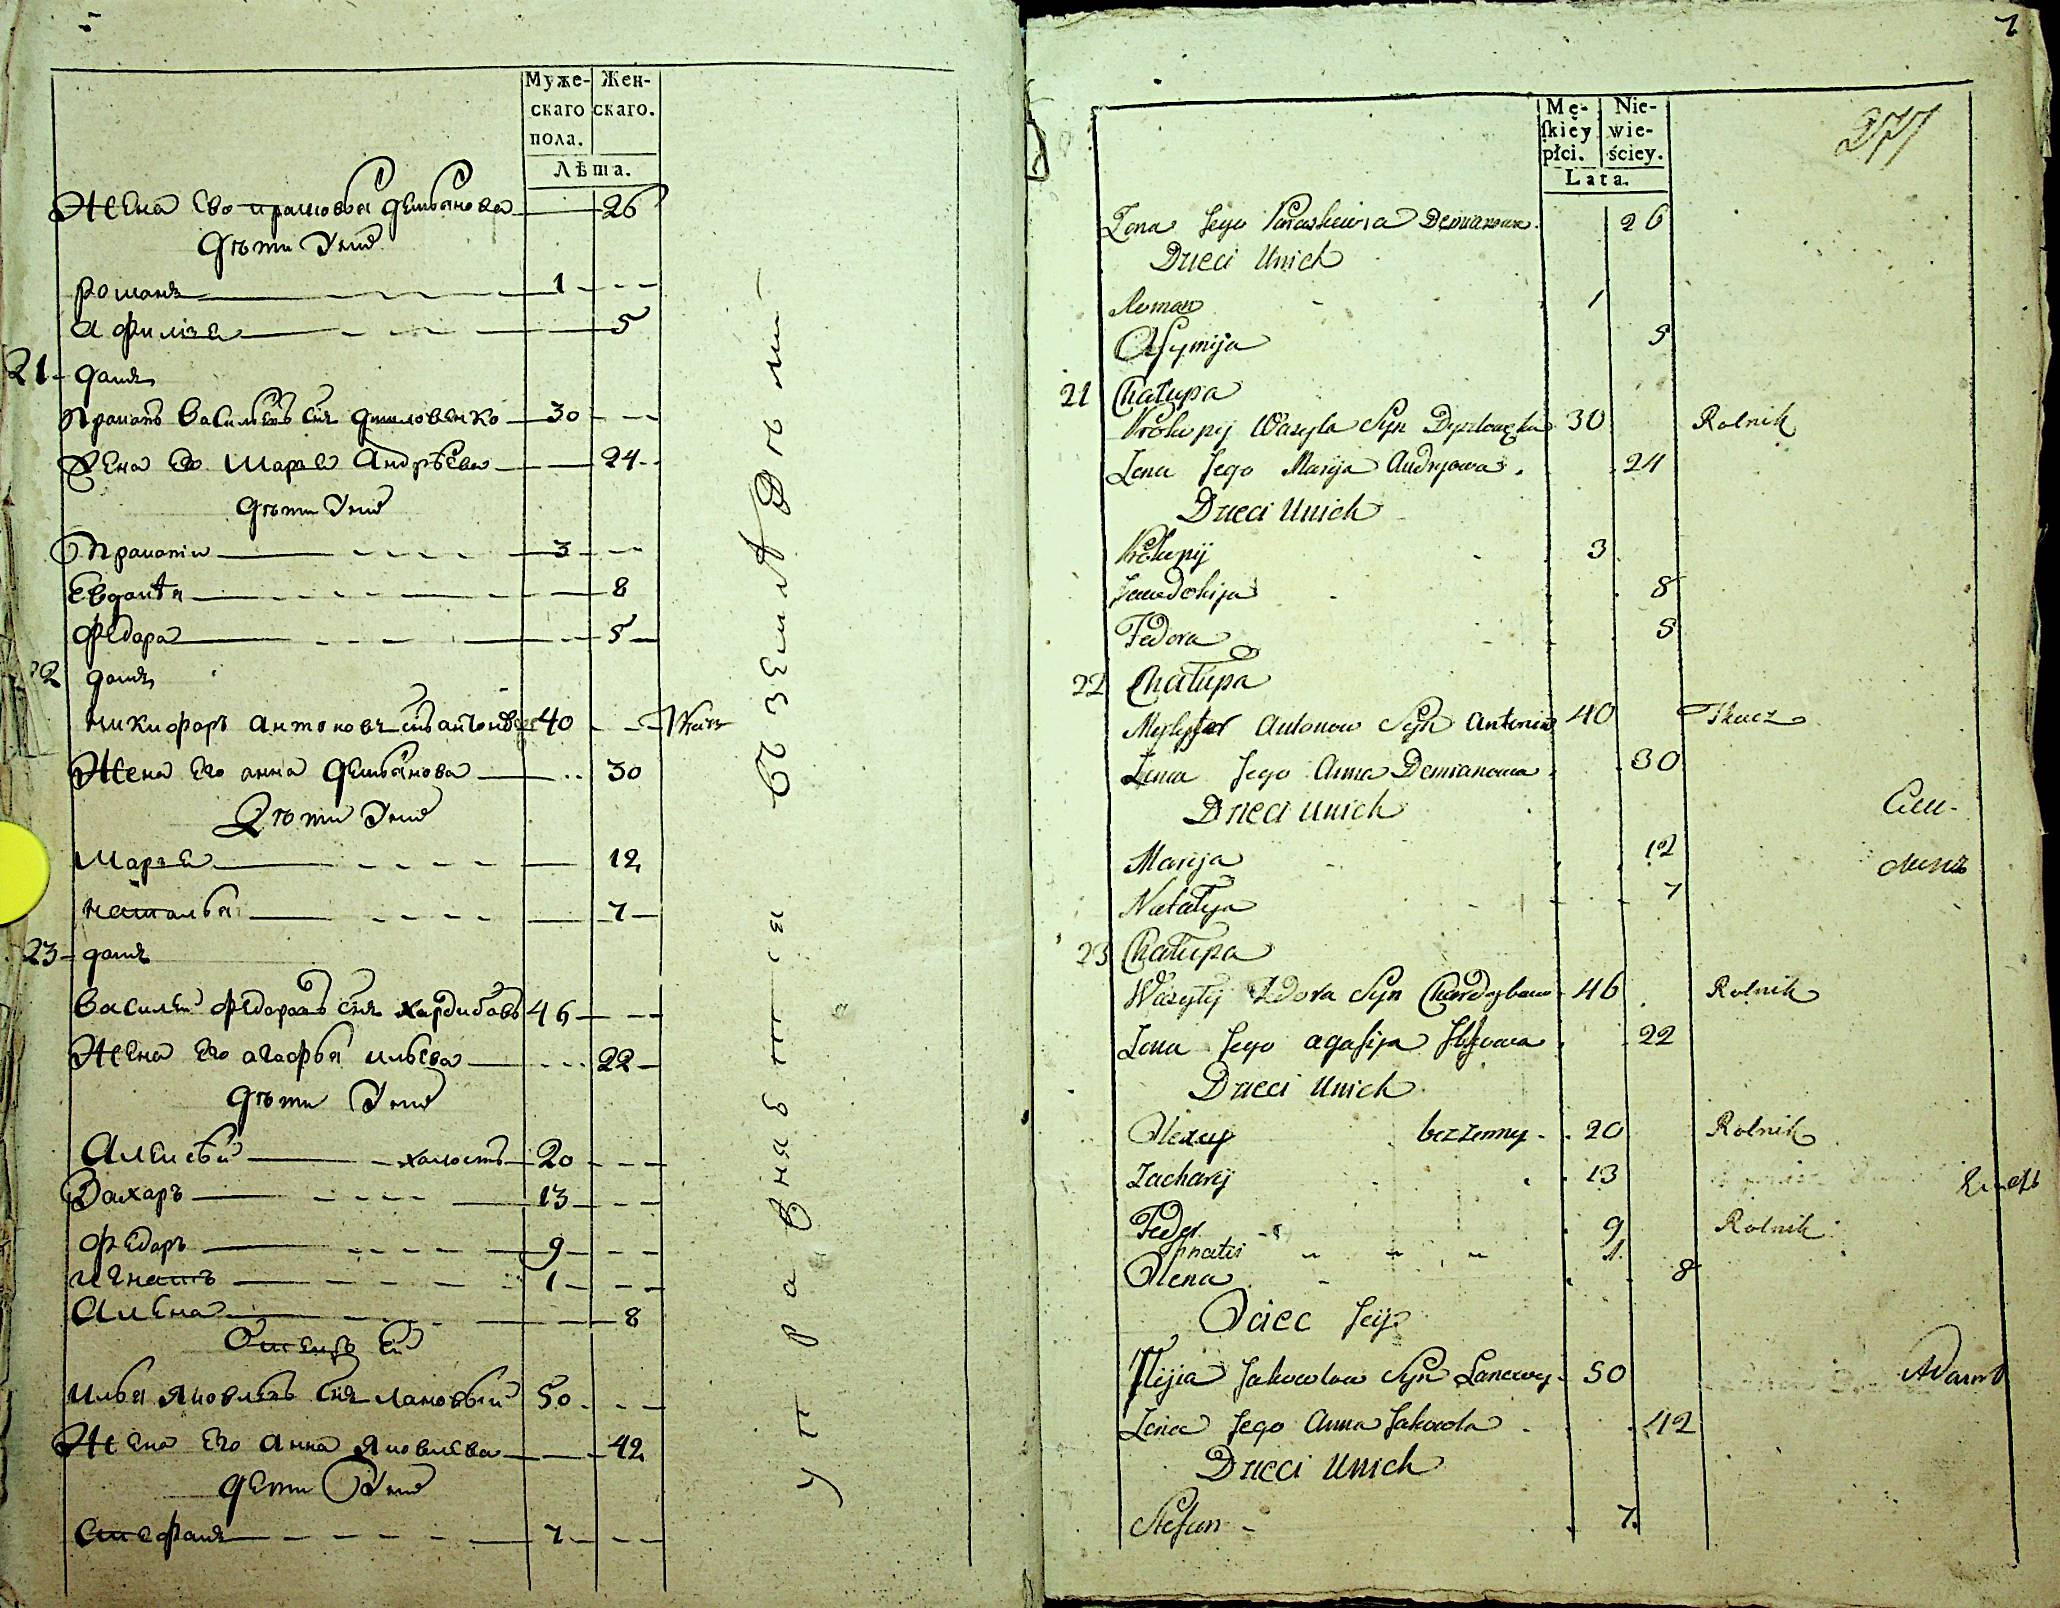 Муже-
скаго
пола.
Жен-
скаго.
Лѣта.
Жена Ево прасковья демьянова 26
дѣти У ни
романъ 1
афимѣа 5
21 домъ
Пракопъ Васильевъ снъ дишловенко 30
Жена Ево Марѣа Андрѣева 24
дѣти У ни
Пракопіи 3
Евдокѣя 8
Федора 5
22 домъ
Никифоръ антоновъ снъ антонов 40 Ткачь
Жена Его анна демьянова 30
Дѣти У ни
Марѣа 12
наталья 7
23 домъ
Василей Федоровъ снъ хардибовъ 46
Жена Его агафья ильева 22
дѣти У ни
Алексѣй холостъ 20
Захаръ 13
Федоръ 9
Игнатъ 1
Алена 8
Отецъ Ей
Илья Яковлевъ снъ лановый 50
Жена Его Анна Яковлева 42
дети У ни
Стефанъ 7
упражняются в земледѣли
7
277
Mę-
ſkiey
płci.
Nie-
wie-
ściey.
Lata.
Żona Jego Paraskiewia Demianowa 26
Dzieci Unich
Roman 1
Afymija 5
21 Chałupa
Prokupij Wasyla Syn Dyszlowęko 30 Rolnik
Żona Jego Marija Andryowa 24
Dzieci Unich
Prokupij 3
Jewdokija 8
Fedora 5
22 Chałupa
Antonow Syn Antonio 40 Tkacz
Żona Jego Anna Demianowa 30
Dzieci Unich
Marija 12
Natałya 7
23 Chałupa
Wasylij Fedora Syn Chardybow 46 Rolnik
Żona Jego agafija Iljowa 22
Dzieci Unich
Olexey bezżenny 20 Rolnik
Zacharij 13
Feder 9 Rolnik
Ihnatii 1
Olena 8
Ociec Jeij
Ilijia Jakowlow Syn Lanowy 50
Adamъ
Żona Jego Anna Jakowla 42
Dzieci Unich
Stefan 7